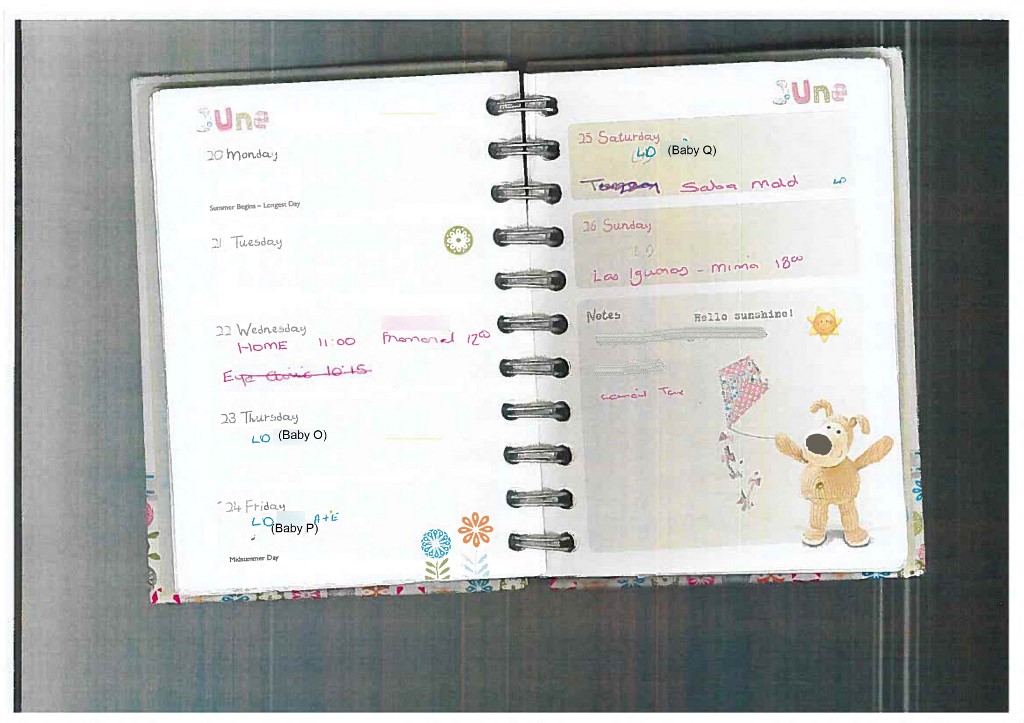 June
20 Monday
Summer Begins – Longest Day
21 Tuesday
22 Wednesday
HOME 11:00 1200
Eye Clinic 10:15
23 Thursday
LD (Baby O)
24 Friday
LD A+E
(Baby P)
Midsummer Day
June
25 Saturday
LD (Baby Q)
Salsa Mold LD
26 Sunday
LD
Las Iguanas - Minna 1800
Notes Hello sunshine!
Council Tax